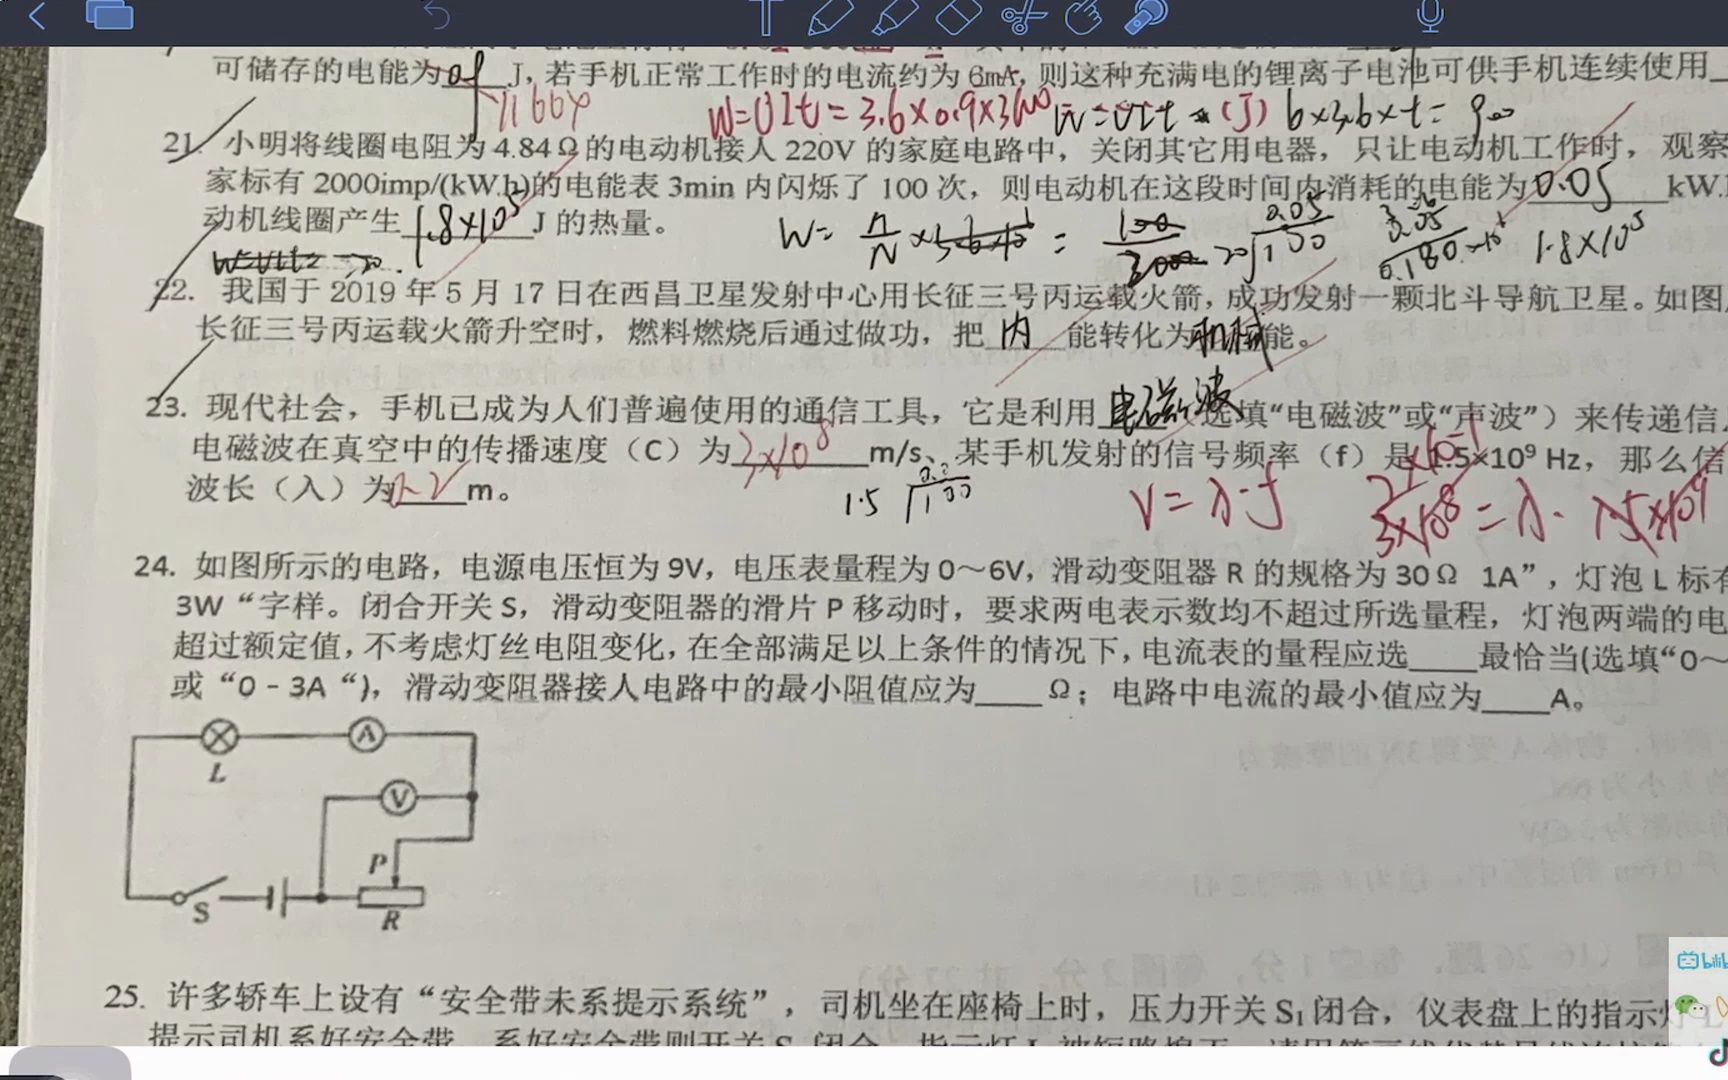 可储存的电能为 J，若手机正常工作时的电流约为6mA，则这种充满电的锂离子电池可供手机连续使用
11664 W=UIt=3.6×0.9×3600 W=UIt (J) 6×3.6×t=
21. 小明将线圈电阻为4.84Ω的电动机接人220V的家庭电路中，关闭其它用电器，只让电动机工作时，观察
家标有2000imp/(kW.h)的电能表3min内闪烁了100次，则电动机在这段时间内消耗的电能为0.05 kW.
动机线圈产生1.8×10⁵J的热量。
W= n/N 20 100 0.05 1.8×10⁵
22. 我国于2019年5月17日在西昌卫星发射中心用长征三号丙运载火箭，成功发射一颗北斗导航卫星。如图
长征三号丙运载火箭升空时，燃料燃烧后通过做功，把内能转化为机械能。
23. 现代社会，手机已成为人们普遍使用的通信工具，它是利用电磁波选填“电磁波”或“声波”）来传递信
电磁波在真空中的传播速度（C）为3×10⁸m/s、某手机发射的信号频率（f）是1.5×10⁹ Hz，那么信
波长（入）为0.2m。
1.5 100 V=λ·f 3×10⁸=λ·1.5×10⁹
24. 如图所示的电路，电源电压恒为9V，电压表量程为0～6V，滑动变阻器R的规格为30Ω 1A”，灯泡L标有
3W“字样。闭合开关S，滑动变阻器的滑片P移动时，要求两电表示数均不超过所选量程，灯泡两端的电
超过额定值，不考虑灯丝电阻变化，在全部满足以上条件的情况下，电流表的量程应选____最恰当(选填“0～
或“0－3A“)，滑动变阻器接人电路中的最小阻值应为____Ω；电路中电流的最小值应为____A。
L
A
V
P
S
R
25. 许多轿车上设有“安全带未系提示系统”，司机坐在座椅上时，压力开关S₁闭合，仪表盘上的指示灯
提示司机系好安全带，系好安全带则开关S